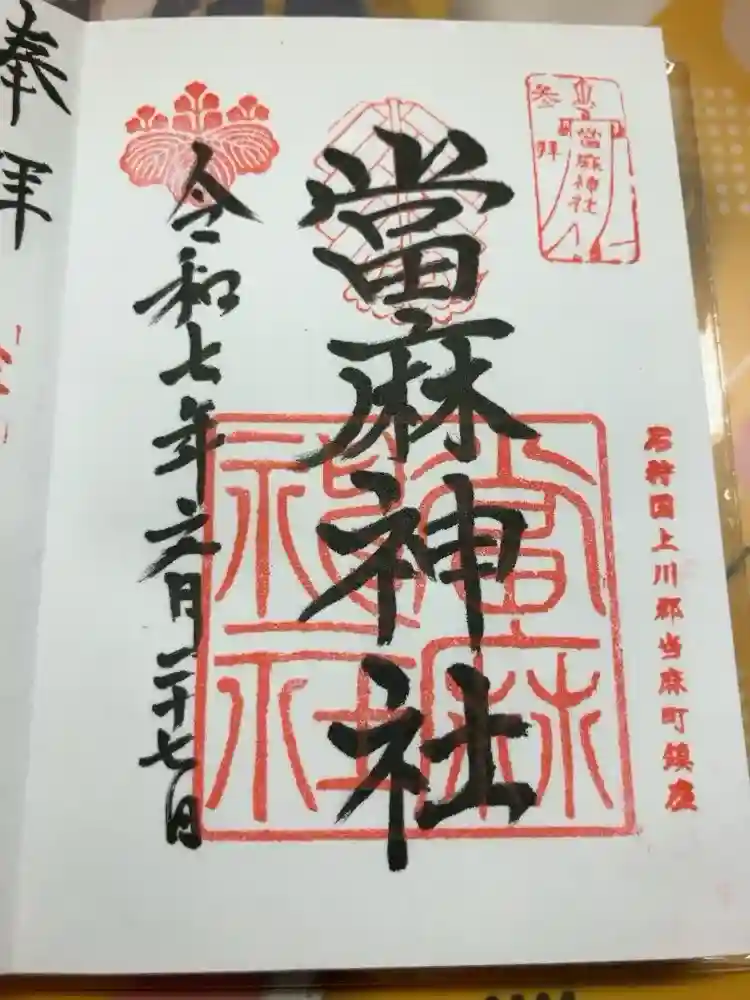 参拝
當麻神社
石狩国上川郡当麻町鎮座
當麻神社
當麻神社
令和七年六月二十七日
奉拝